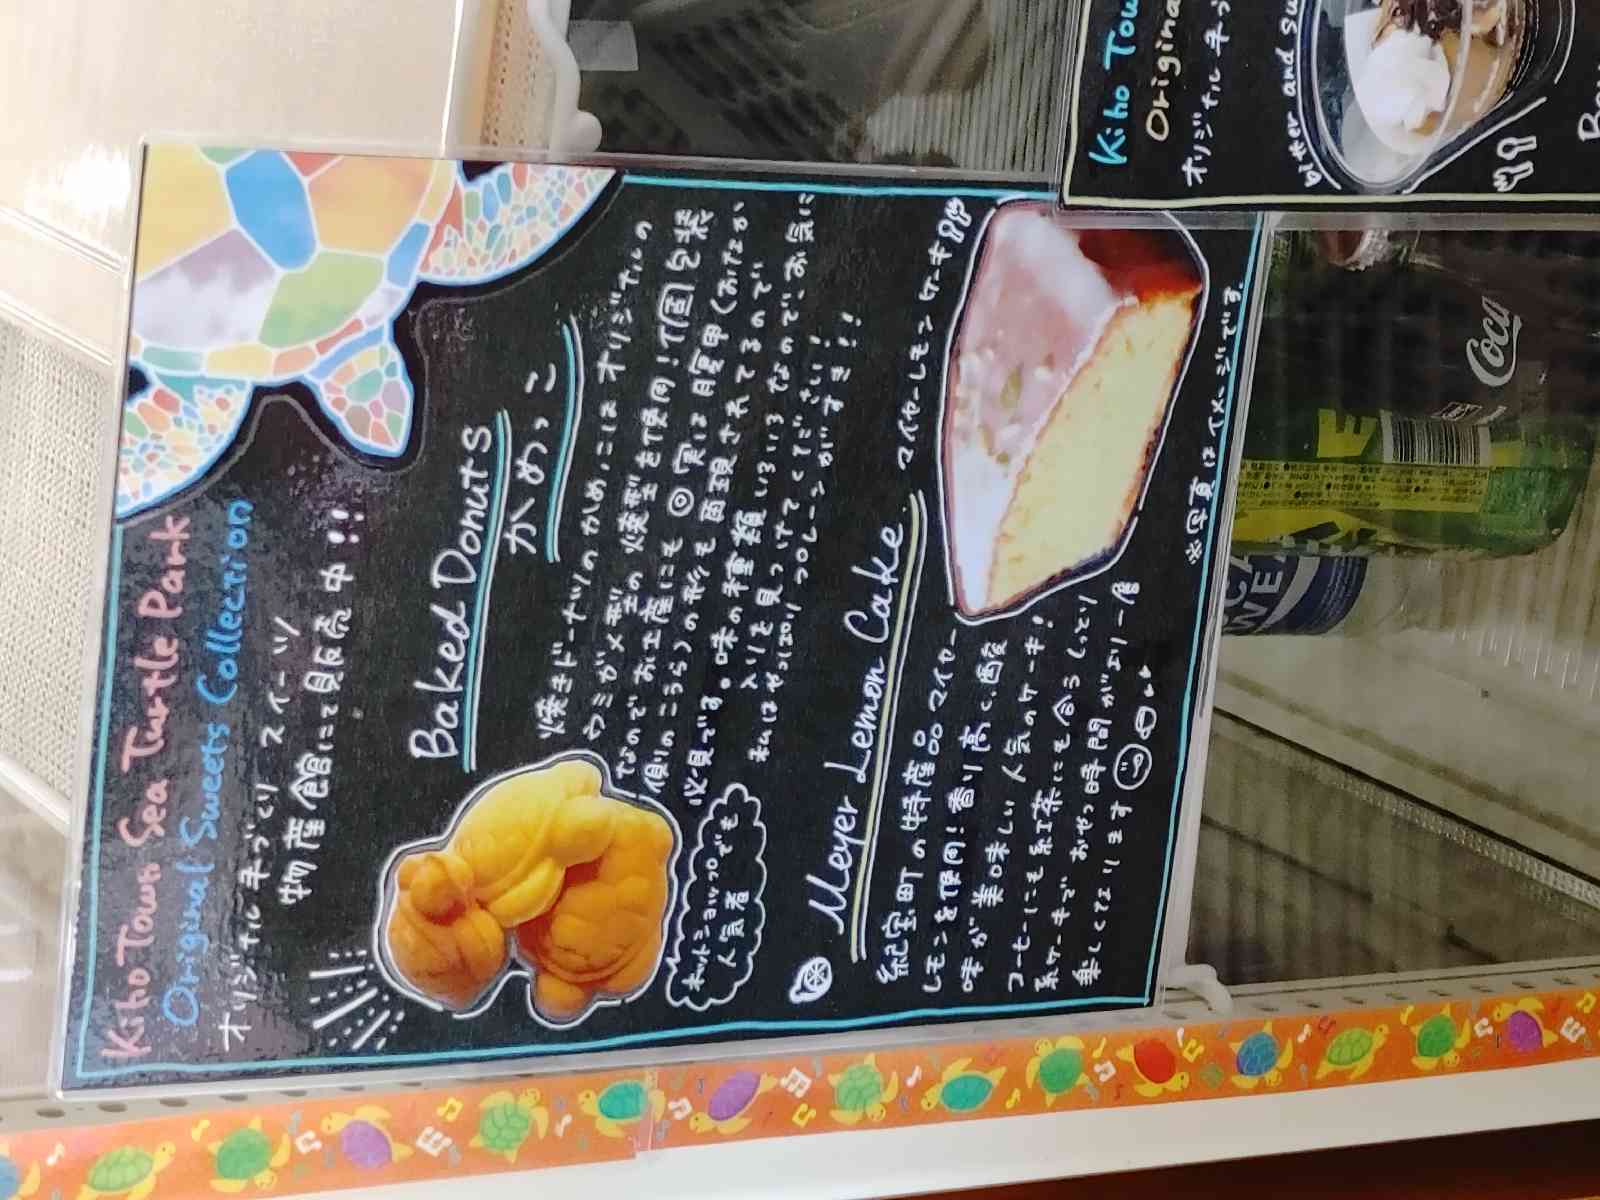 Kiho Town Sea Turtle Park
Original Sweets Collection
オリジナル手づくりスイーツ
物産館にて販売中!!
Baked Donuts
かめっこ
焼きドーナツのかめっこは オリジナルの
ウミガメ型の焼型を使用!1個包装
なのでお土産にも◎実は腹甲(おなか
側のこうら)の形も再現されてるので
必見です。味の種類いろいろなのでお気に
入りを見つけてください!
私はやっぱりプレーンがすき!!
ホットミヨリップでも
人気者
Meyer Lemon Cake.マイヤーレモンケーキ
紀宝町の特産品マイヤー
レモンを使用!香り高く、酸
味が美味しい人気のケーキ!
コーヒーにも紅茶にも合うしっとり
系ケーキで おやつ時間がより一層
楽しくなります
※写真はイメージです。
Kiho Tow
Origina
オリジナル手づ
bitter and su
Coca